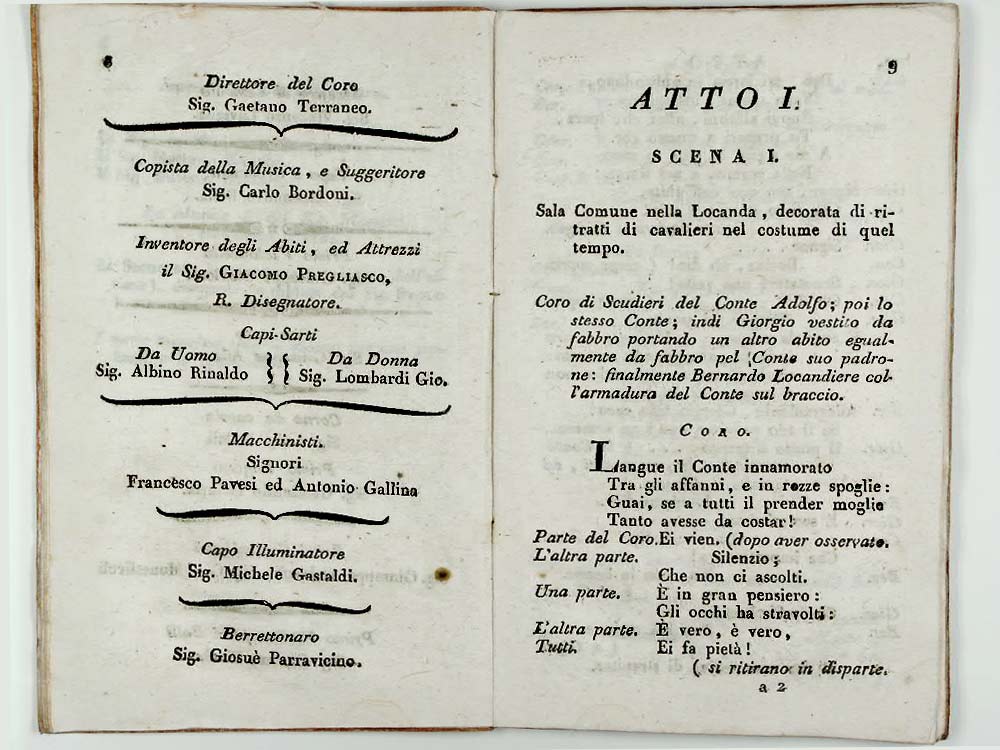 8
Direttore del Coro
Sig. Gaetano Terraneo.
Copista della Musica, e Suggeritore
Sig. Carlo Bordoni.
Inventore degli Abiti, ed Attrezzi
il Sig. GIACOMO PREGLIASCO,
R. Disegnatore.
Capi-Sarti
Da Uomo
Sig. Albino Rinaldo
Da Donna
Sig. Lombardi Gio.
Macchinisti.
Signori
Francesco Pavesi ed Antonio Gallina
Capo Illuminatore
Sig. Michele Gastaldi.
Berrettonaro
Sig. Giosuè Parravicino.
9
ATTO I.
SCENA I.
Sala Comune nella Locanda, decorata di ri-
tratti di cavalieri nel costume di quel
tempo.
Coro di Scudieri del Conte Adolfo; poi lo
stesso Conte; indi Giorgio vestito da
fabbro portando un altro abito egual-
mente da fabbro pel Conte suo padro-
ne: finalmente Bernardo Locandiere col-
l'armadura del Conte sul braccio.
CORO.
Langue il Conte innamorato
Tra gli affanni, e in rozze spoglie:
Guai, se a tutti il prender moglie
Tanto avesse da costar!
Parte del Coro. Ei vien. (dopo aver osservato.
L'altra parte. Silenzio;
Che non ci ascolti.
Una parte. È in gran pensiero:
Gli occhi ha stravolti:
L'altra parte. È vero, è vero,
Tutti. Ei fa pietà!
(si ritirano in disparte.
a 2